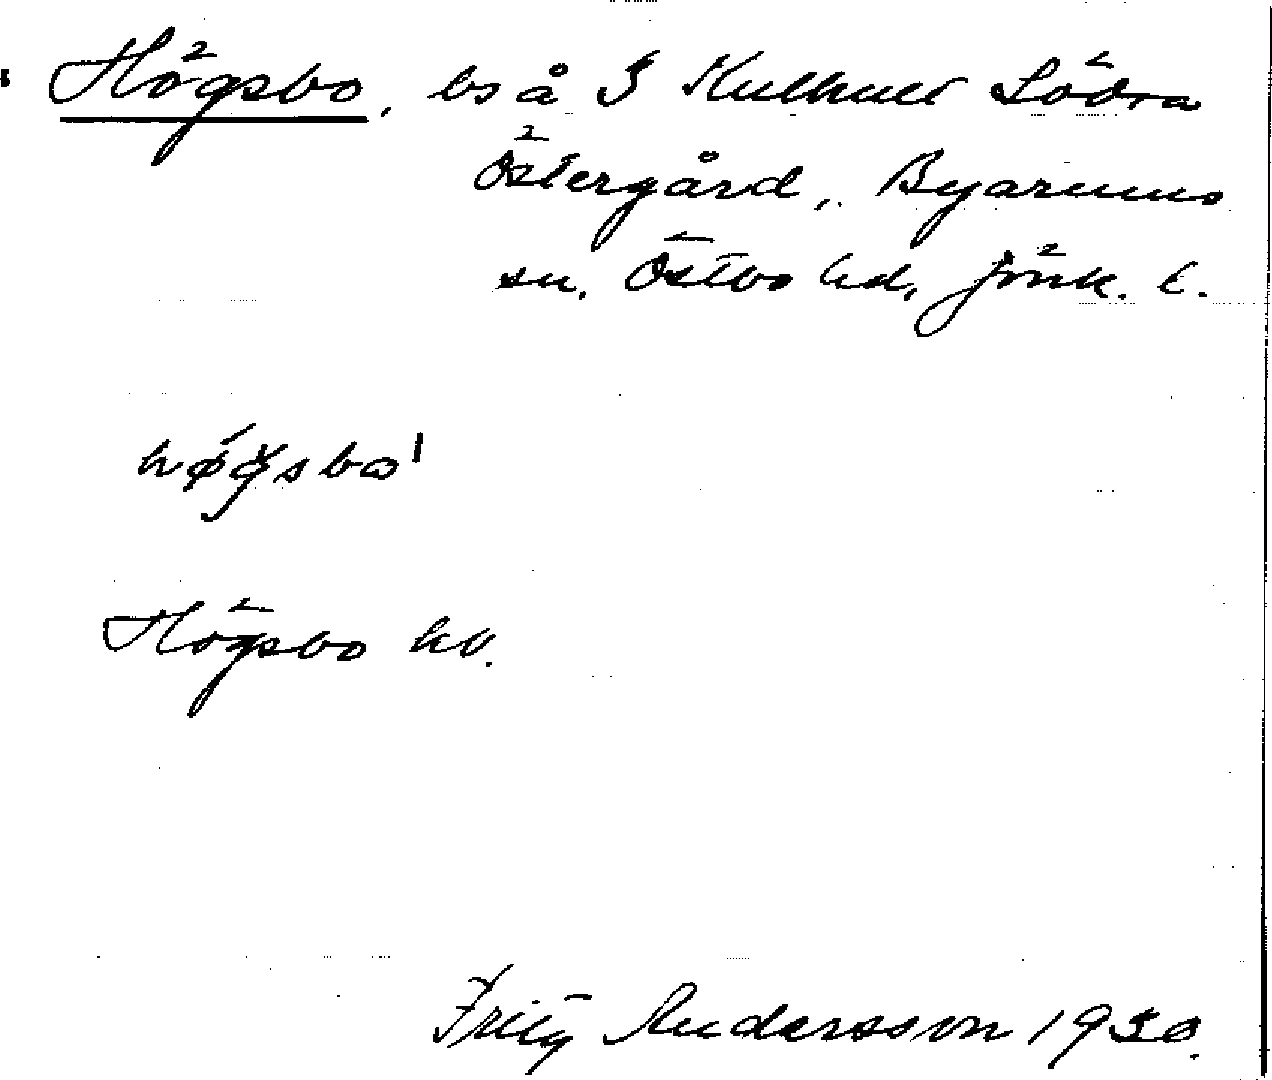 Högsbo, bs å 3 Kulhult Södra
Östergård, Byarums
sn. Östbo hd, Jönk. l.
Högsbo hd.
Fritz Andersson 1930.